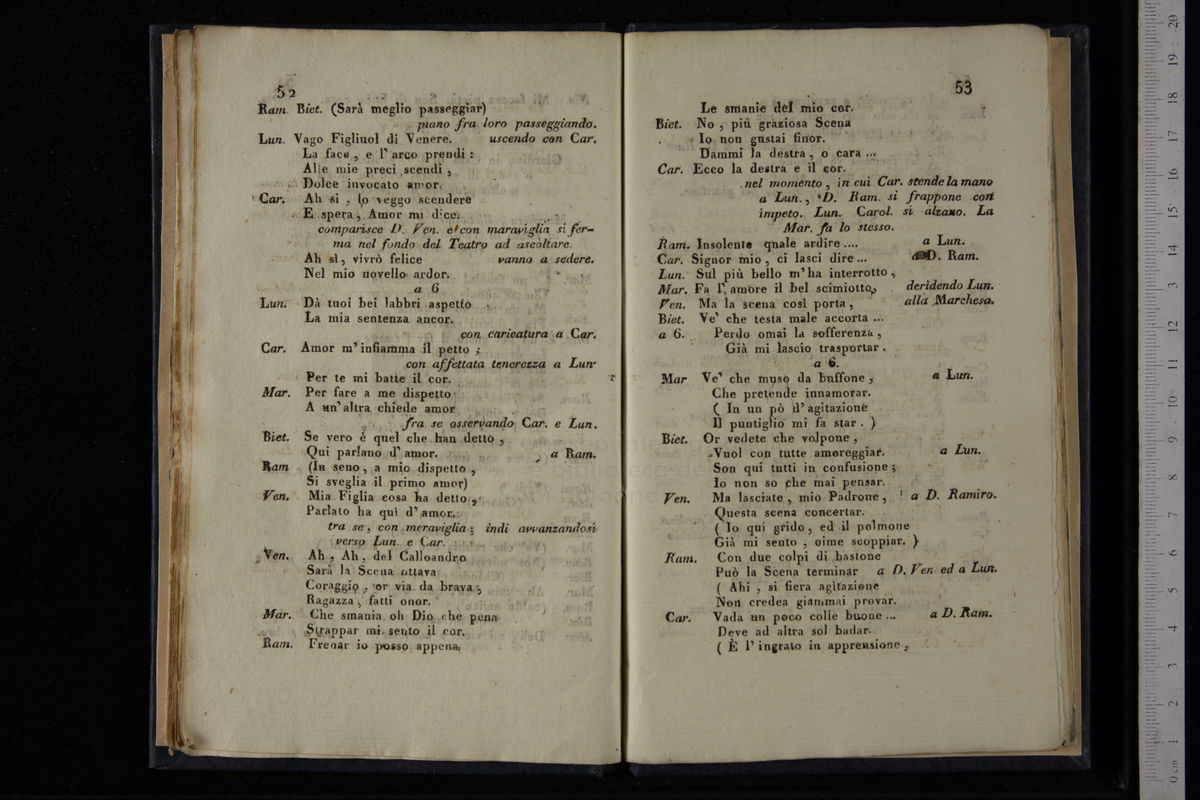 52
Ram. Biet. (Sarà meglio passeggiar)
piano fra loro passeggiando.
Lun. Vago Figliuol di Venere. uscendo con Car.
La face, e l'arco prendi:
Alle mie preci scendi,
Dolce invocato amor.
Car. Ah si, lo veggo scendere
E spera, Amor mi dice.
comparisce D. Ven. e con maraviglia si fer-
ma nel fondo del Teatro ad ascoltare.
Ah sì, vivrò felice vanno a sedere.
Nel mio novello ardor.
a 6
Lun. Dà tuoi bei labbri aspetto
La mia sentenza ancor.
con caricatura a Car.
Car. Amor m'infiamma il petto;
con affettata tenerezza a Lun.
Per te mi batte il cor.
Mar. Per fare a me dispetto
A un'altra chiede amor
fra se osservando Car. e Lun.
Biet. Se vero è quel che han detto,
Qui parlano d'amor. a Ram.
Ram (In seno, a mio dispetto,
Si sveglia il primo amor)
Ven. Mia Figlia cosa ha detto,
Parlato ha quì d'amor.
tra se, con meraviglia; indi avvanzandosi
verso Lun. e Car.
Ven. Ah, Ah, del Calloandro
Sarà la Scena ottava
Coraggio, or via da brava,
Ragazza, fatti onor.
Mar. Che smania oh Dio che pena
Strappar mi sento il cor.
Ram. Frenar io posso appena,
53
Le smanie del mio cor.
Biet. No, più graziosa Scena
Io non gustai finor.
Dammi la destra, o cara ...
Car. Ecco la destra e il cor.
nel momento, in cui Car. stende la mano
a Lun., D. Ram. si frappone con
impeto. Lun. Carol. si alzano. La
Mar. fa lo stesso.
Ram. Insolente quale ardire .... a Lun.
Car. Signor mio, ci lasci dire ... a D. Ram.
Lun. Sul più bello m'ha interrotto,
Mar. Fa l'amore il bel scimiotto, deridendo Lun.
Ven. Ma la scena così porta, alla Marchesa.
Biet. Ve' che testa male accorta ...
a 6. Perdo omai la sofferenza,
Già mi lascio trasportar.
a 6.
Mar Ve' che muso da buffone, a Lun.
Che pretende innamorar.
( In un pò d'agitazione
Il puntiglio mi fa star. )
Biet. Or vedete che volpone,
Vuol con tutte amoreggiar. a Lun.
Son qui tutti in confusione;
Io non so che mai pensar.
Ven. Ma lasciate, mio Padrone, a D. Ramiro.
Questa scena concertar.
( Io qui grido, ed il polmone
Già mi sento, oime scoppiar. )
Ram. Con due colpi di bastone
Può la Scena terminar a D. Ven ed a Lun.
( Ahi, si fiera agitazione
Non credea giammai provar.
Car. Vada un poco colle buone ... a D. Ram.
Deve ad altra sol badar.
( È l'ingrato in apprensione,
20
19
18
17
16
15
14
13
12
11
10
9
8
7
6
5
4
3
2
1
0 cm